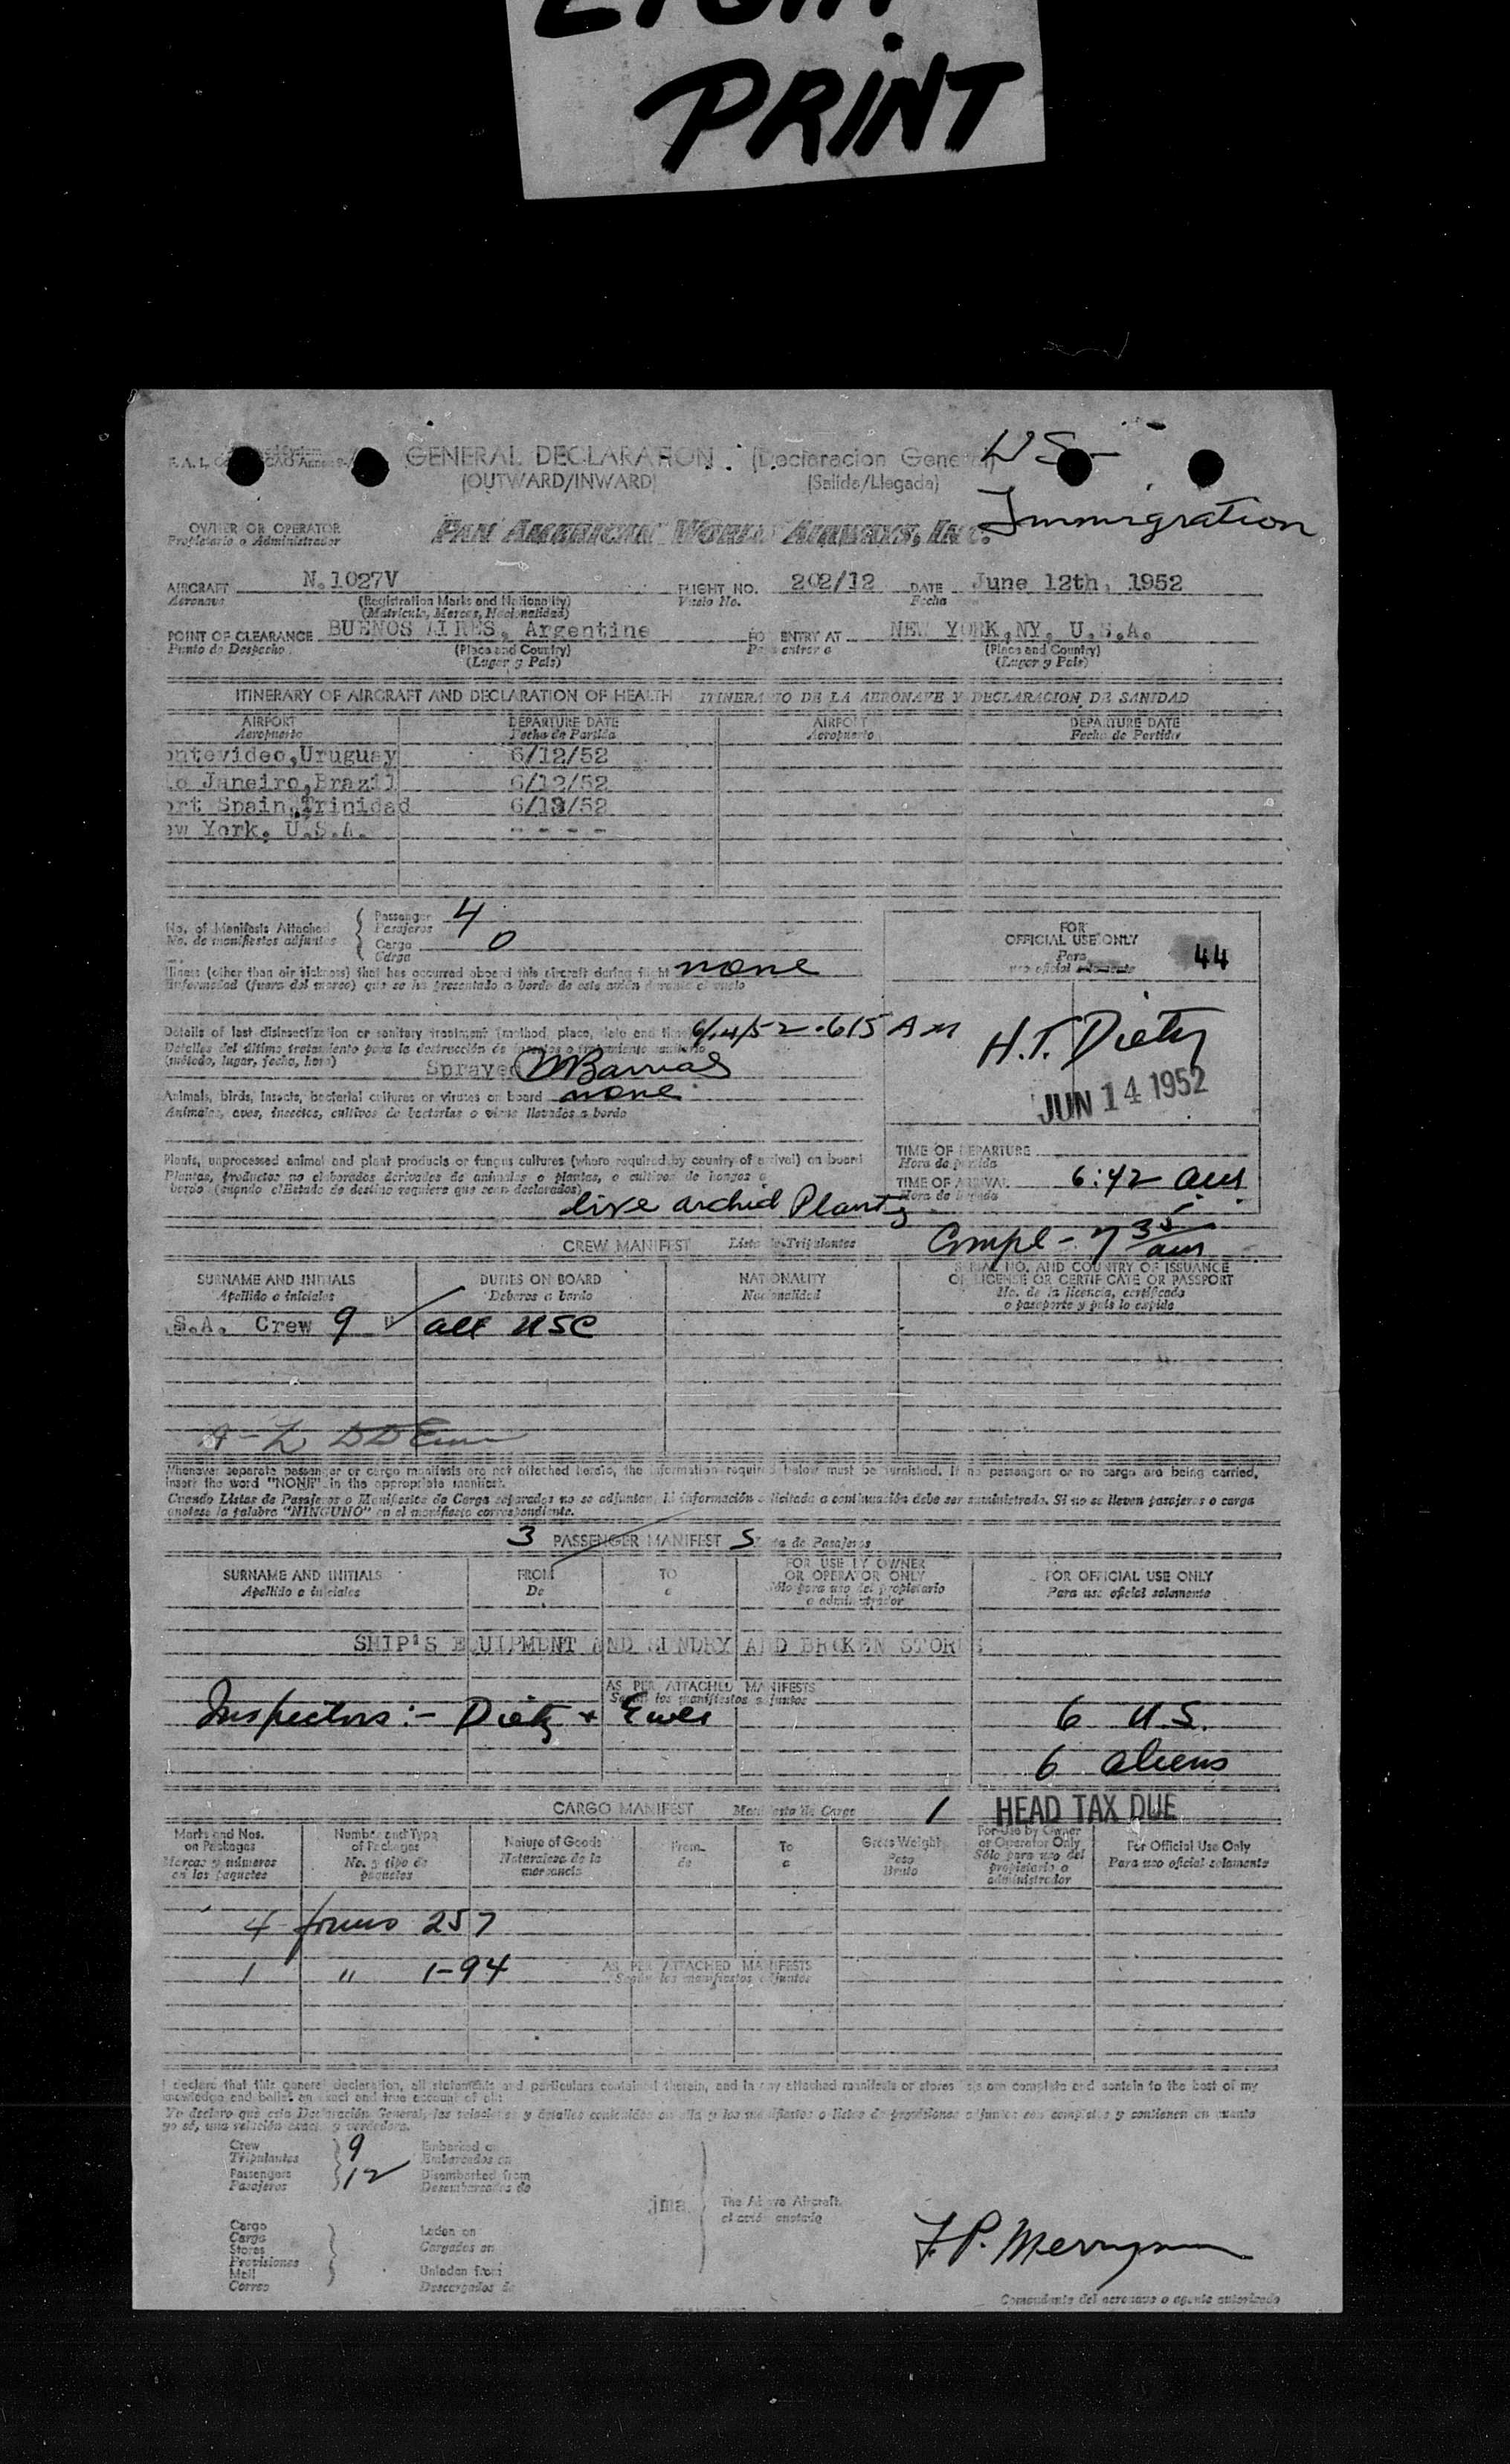 PRINT
GENERAL DECLARATION (Declaracion General)
(OUTWARD/INWARD) (Salida/Llegada)
U.S.
Immigration
OWNER OR OPERATOR
Propietario o Administrador
PAN AMERICAN WORLD AIRWAYS, INC.
AIRCRAFT N.1027V FLIGHT NO. 202/12 DATE June 12th, 1952
Aeronave (Registration Marks and Nationality) Vuelo No. Fecha
(Matricula, Marcas, Nacionalidad)
POINT OF CLEARANCE BUENOS AIRES, Argentine FO ENTRY AT NEW YORK,NY, U.S.A.
Punto de Despacho (Place and Country) Pa entrar a (Place and Country)
(Lugar y Pais) (Lugar y Pais)
ITINERARY OF AIRCRAFT AND DECLARATION OF HEALTH ITINERA TO DE LA AERONAVE Y DECLARACION DE SANIDAD
AIRPORT DEPARTURE DATE AIRPORT DEPARTURE DATE
Aeropuerto Fecha de Partida Aeropuerto Fecha de Partida
ontevideo,Uruguay 6/12/52
o Janeiro,Brazil 6/12/52
ort Spain,Trinidad 6/13/52
ew York. U.S.A. - - - -
No. of Manifests Attached Passenger 4
No. de manifiestos adjuntos Pasajeros
Cargo 0
Carga
FOR
OFFICIAL USE ONLY
Para
uso oficial solamente
44
Illness (other than air sickness) that has occurred aboard this aircraft during flight none
Enfermedad (fuera del mareo) que se ha presentado a bordo de este avión durante el vuelo
Details of last disinsectization or sanitary treatment (method, place, date and time) 6/14/52 · 615 AM
Detalles del último tratamiento para la destrucción de insectos o tratamiento sanitario
(método, lugar, fecha, hora) Sprayed
H.T. Dietz
JUN 14 1952
Animals, birds, insects, bacterial cultures or viruses on board none
Animales, aves, insectos, cultivos de bacterias o virus llevados a bordo
Plants, unprocessed animal and plant products or fungus cultures (where required by country of arrival) on board
Plantas, productos no elaborados derivados de animales o plantas, o cultivos de hongos a
bordo (cuando el Estado de destino requiere que sean declarados)
live orchid Plants
TIME OF DEPARTURE
Hora de partida
TIME OF ARRIVAL 6:42 am
Hora de llegada
Compl - 7 35 am
CREW MANIFEST Lista de Tripulantes
SURNAME AND INITIALS DUTIES ON BOARD NATIONALITY SERIAL NO. AND COUNTRY OF ISSUANCE
Apellido e iniciales Deberes a bordo Nacionalidad OF LICENSE OR CERTIFICATE OR PASSPORT
No. de la licencia, certificado
o pasaporte y pais lo expide
.S.A. Crew 9 all USC
Whenever separate passenger or cargo manifests are not attached hereto, the information required below must be furnished. If no passengers or no cargo are being carried,
insert the word "NONE" in the appropriate manifest.
Cuando Listas de Pasajeros o Manifiestos de Carga separados no se adjuntan, la información solicitada a continuación debe ser suministrada. Si no se llevan pasajeros o carga
anotese la palabra "NINGUNO" en el manifiesto correspondiente.
3 PASSENGER MANIFEST S ta de Pasajeros
SURNAME AND INITIALS FROM TO FOR USE BY OWNER FOR OFFICIAL USE ONLY
Apellido e iniciales De a OR OPERATOR ONLY Para uso oficial solamente
Sólo para uso del propietario
o administrador
SHIP'S EQUIPMENT AND SUNDRY AND BROKEN STORES
AS PER ATTACHED MANIFESTS
Según los manifiestos adjuntos
Inspectors:- Dietz +
6 U.S.
6 aliens
CARGO MANIFEST Manifiesto de Carga 1 HEAD TAX DUE
Marks and Nos. Number and Type Nature of Goods From To Gross Weight For Use by Owner For Official Use Only
on Packages of Packages Naturaleza de la de a Peso or Operator Only Para uso oficial solamente
Marcas y números No. y tipo de mercancia Bruto Sólo para uso del
en los paquetes paquetes propietario o
administrador
4 forms 257
1 " 1-94
AS PER ATTACHED MANIFESTS
Según los manifiestos adjuntos
I declare that this general declaration, all statements and particulars contained therein, and in any attached manifests or stores are complete and contain to the best of my
knowledge and belief an exact and true account of all:
Yo declaro que esta Declaración General, las relaciones y detalles contenidos en ella y los manifiestos o listas de provisiones adjuntos son completos y contienen en cuanto
yo sé, una relación exacta y verdadera.
Crew 9 Embarked on
Tripulantes Embarcados en
Passengers 12 Disembarked from
Pasajeros Desembarcados de
ima The Above Aircraft
el avión anotado
Cargo
Carga Laden on
Stores Cargados en
Provisiones
Mail Unladen from
Correo Descargados de
F.P. Merryman
Comandante del aeronave o agente autorizado